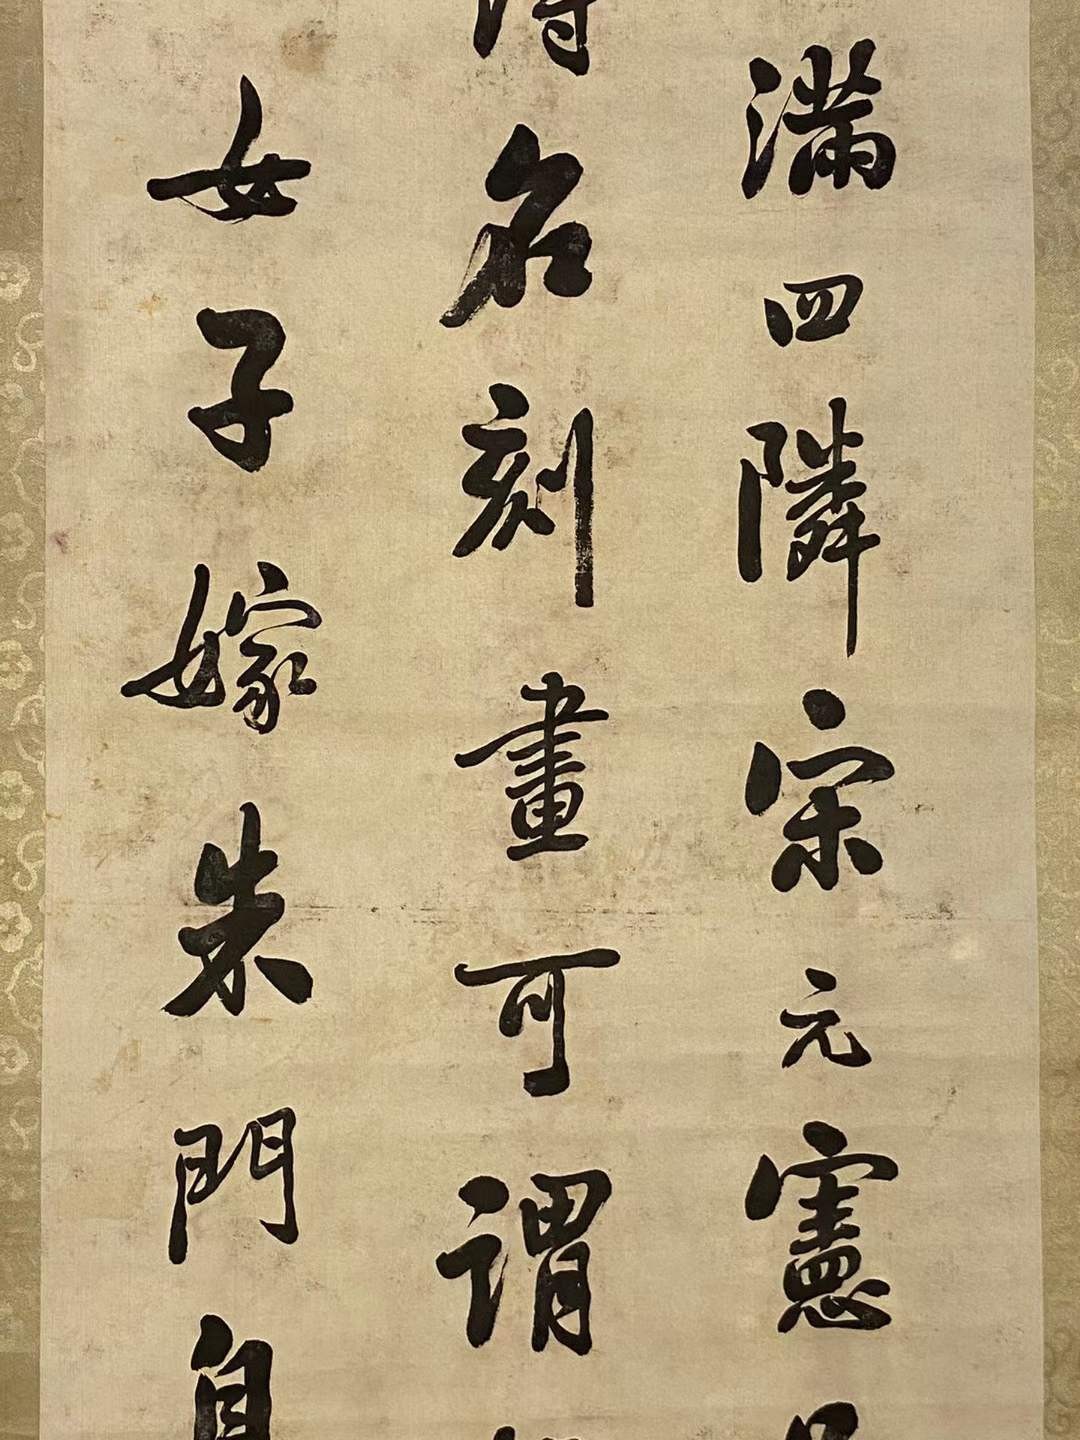 滿四隣宋元憲
名刻畫可謂
女子嫁朱門自